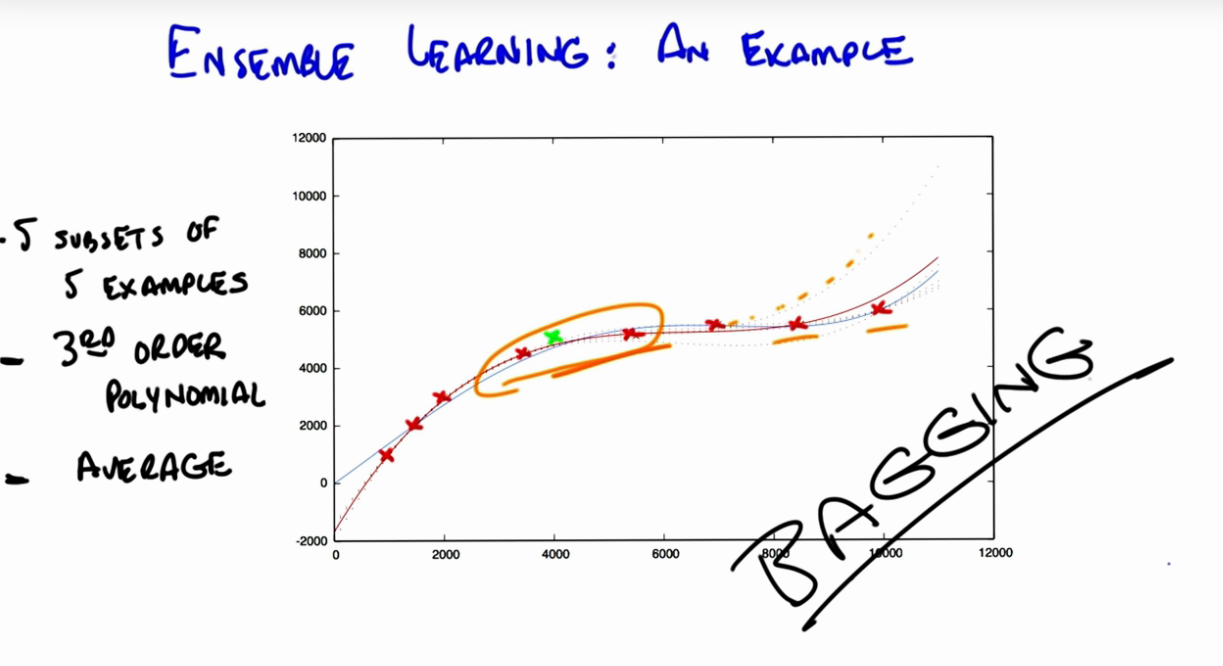 ENSEMBLE LEARNING: AN EXAMPLE
- 5 SUBSETS OF
5 EXAMPLES
- 3RD ORDER
POLYNOMIAL
- AVERAGE
12000
10000
8000
6000
4000
2000
0
-2000
0 2000 4000 6000 8000 10000 12000
BAGGING